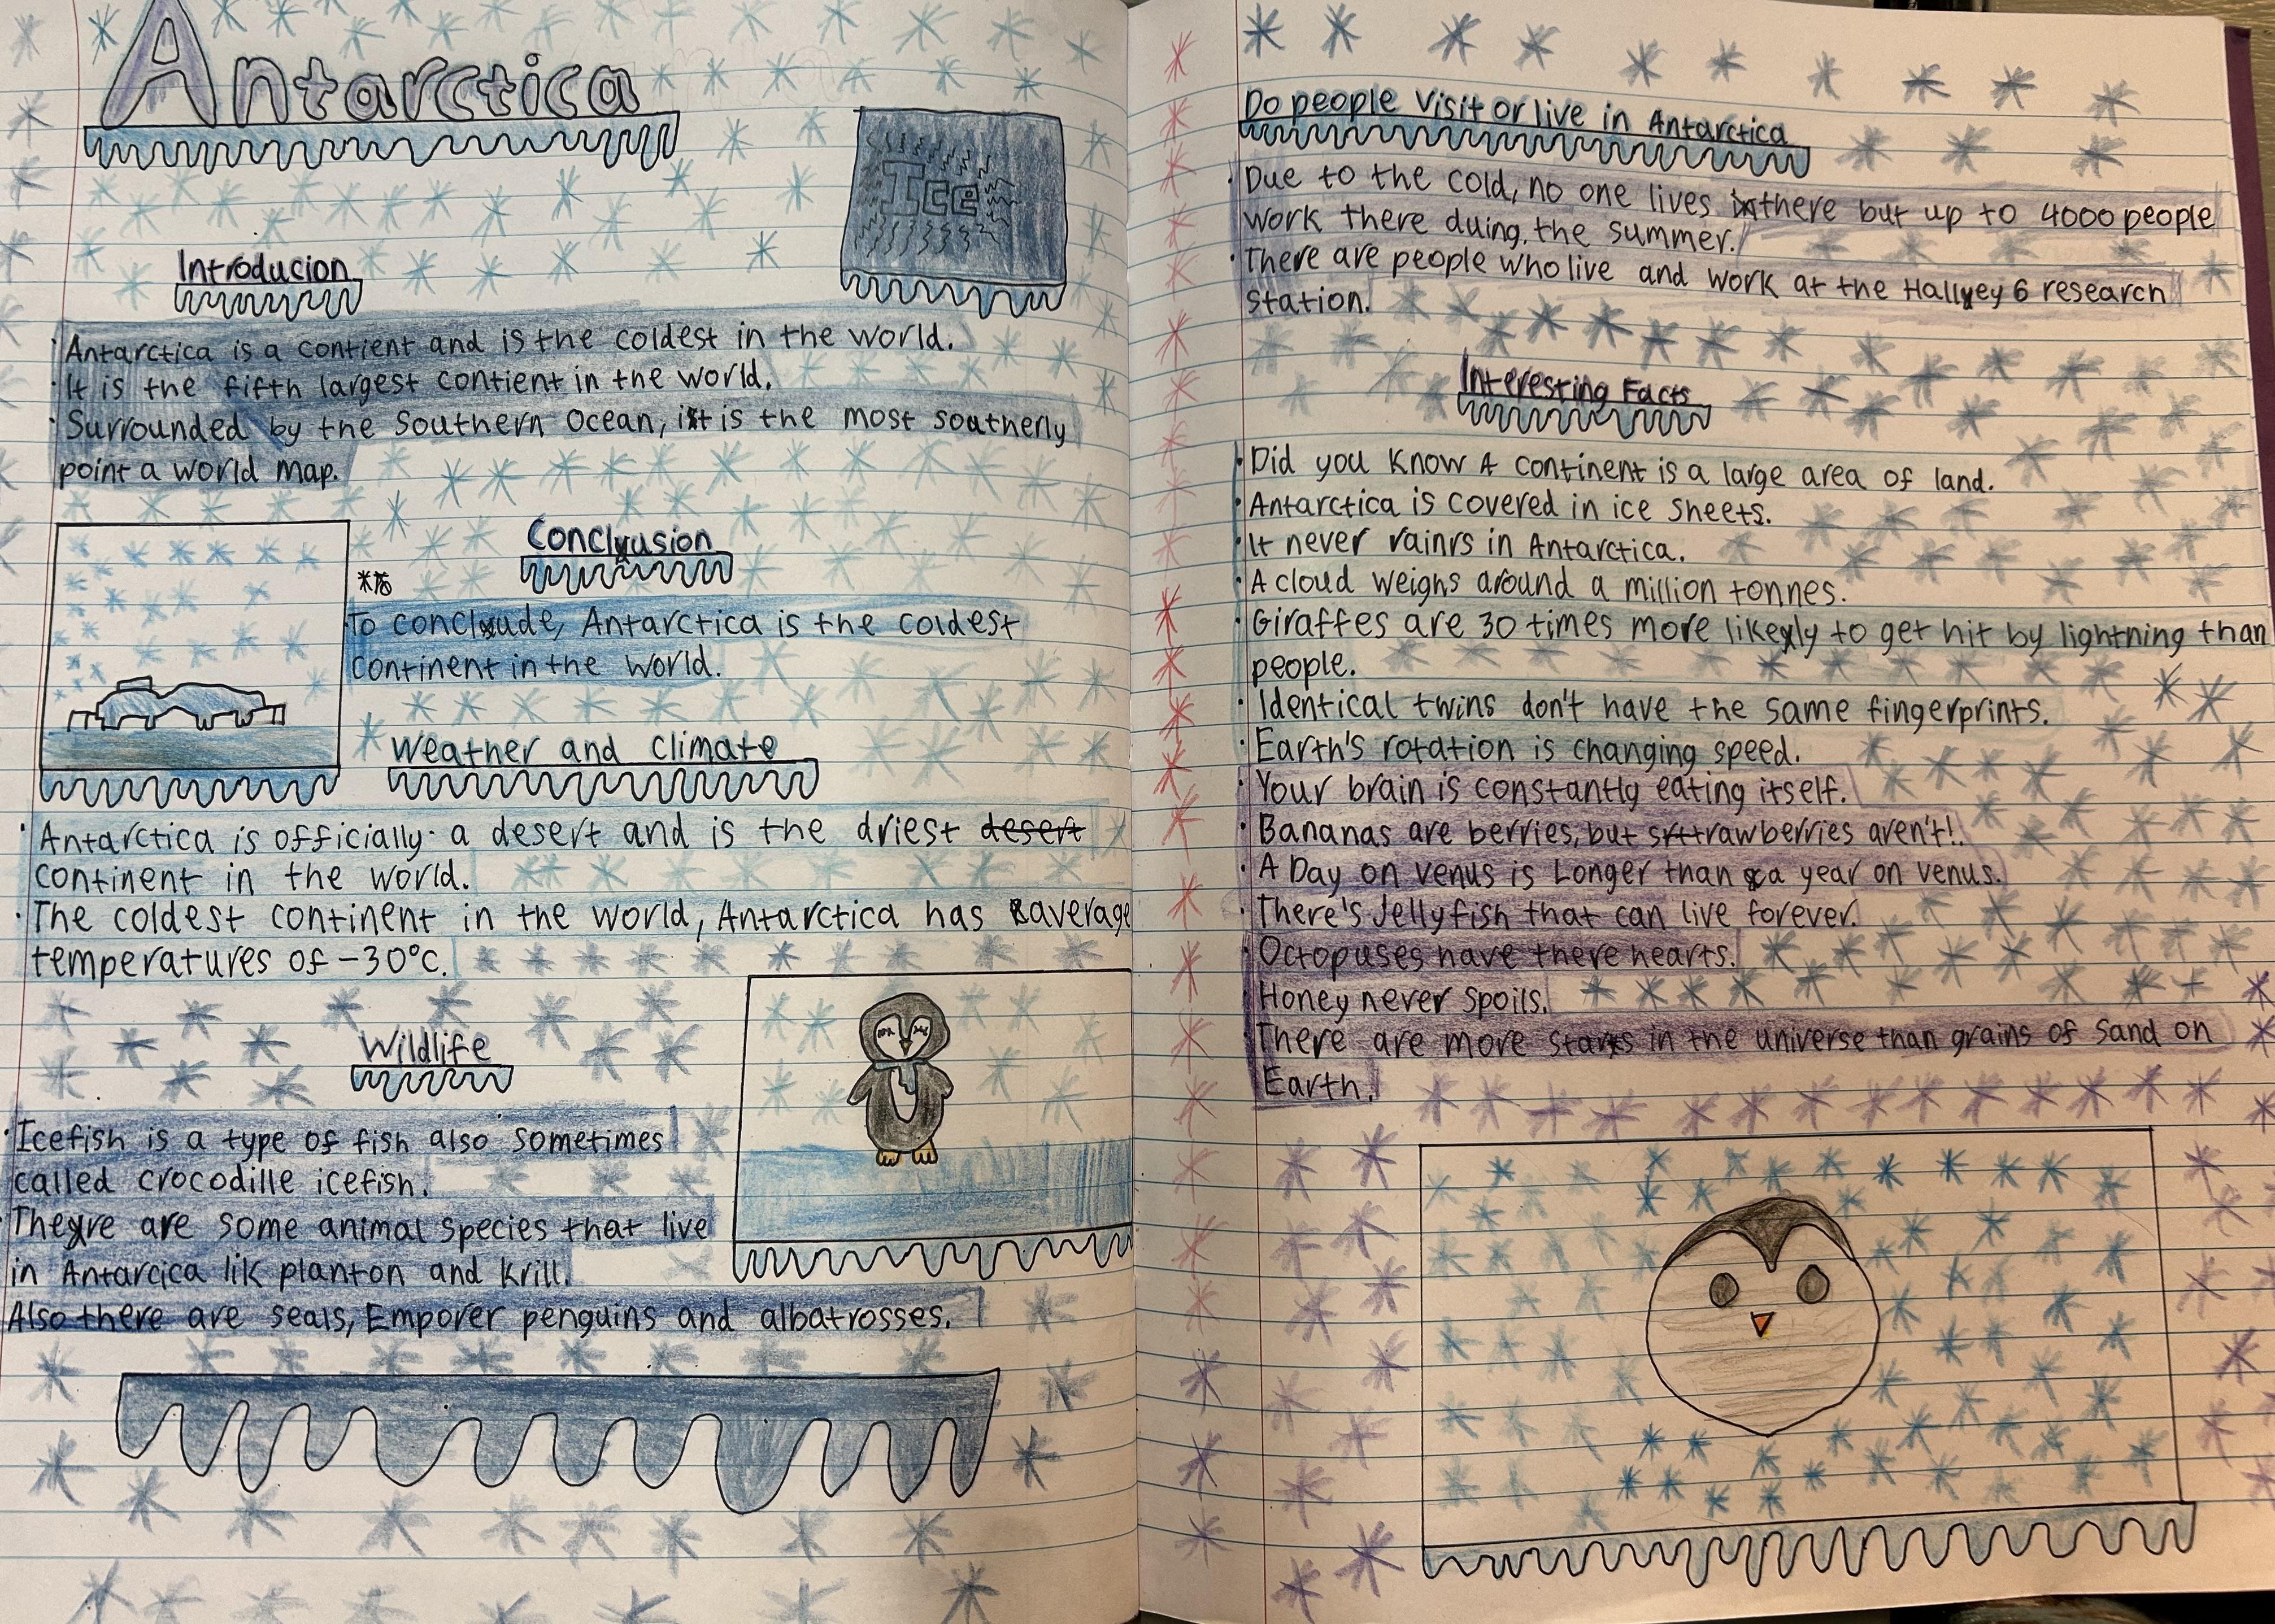 Antarctica
Ice
Introducion
· Antarctica is a contient and is the coldest in the world.
· It is the fifth largest contient in the world.
· Surrounded by the Southern Ocean, it is the most southerly
point a world map.
Concluusion
To conclude, Antarctica is the coldest
continent in the world.
Weather and climate
· Antarctica is officially a desert and is the driest desert
continent in the world.
· The coldest continent in the world, Antarctica has average
temperatures of -30°c.
Wildlife
· Icefish is a type of fish also sometimes
called crocodille icefish.
· There are some animal species that live
in Antarcica lik planton and krill.
Also there are seals, Emporer penguins and albatrosses.
Do people visit or live in Antarctica
· Due to the cold, no one lives there but up to 4000 people
work there duing. the summer.
· There are people who live and work at the Halley 6 research
station.
Interesting Facts
· Did you know A continent is a large area of land.
· Antarctica is covered in ice sheets.
· It never rains in Antarctica.
· A cloud weighs around a million tonnes.
· Giraffes are 30 times more likely to get hit by lightning than
people.
· Identical twins don't have the same fingerprints.
· Earth's rotation is changing speed.
· Your brain is constantly eating itself.
· Bananas are berries, but strawberries aren't!.
· A Day on venus is Longer than a year on venus.
· There's Jellyfish that can live forever.
· Octopuses have there hearts.
Honey never spoils.
There are more stars in the universe than grains of sand on
Earth.